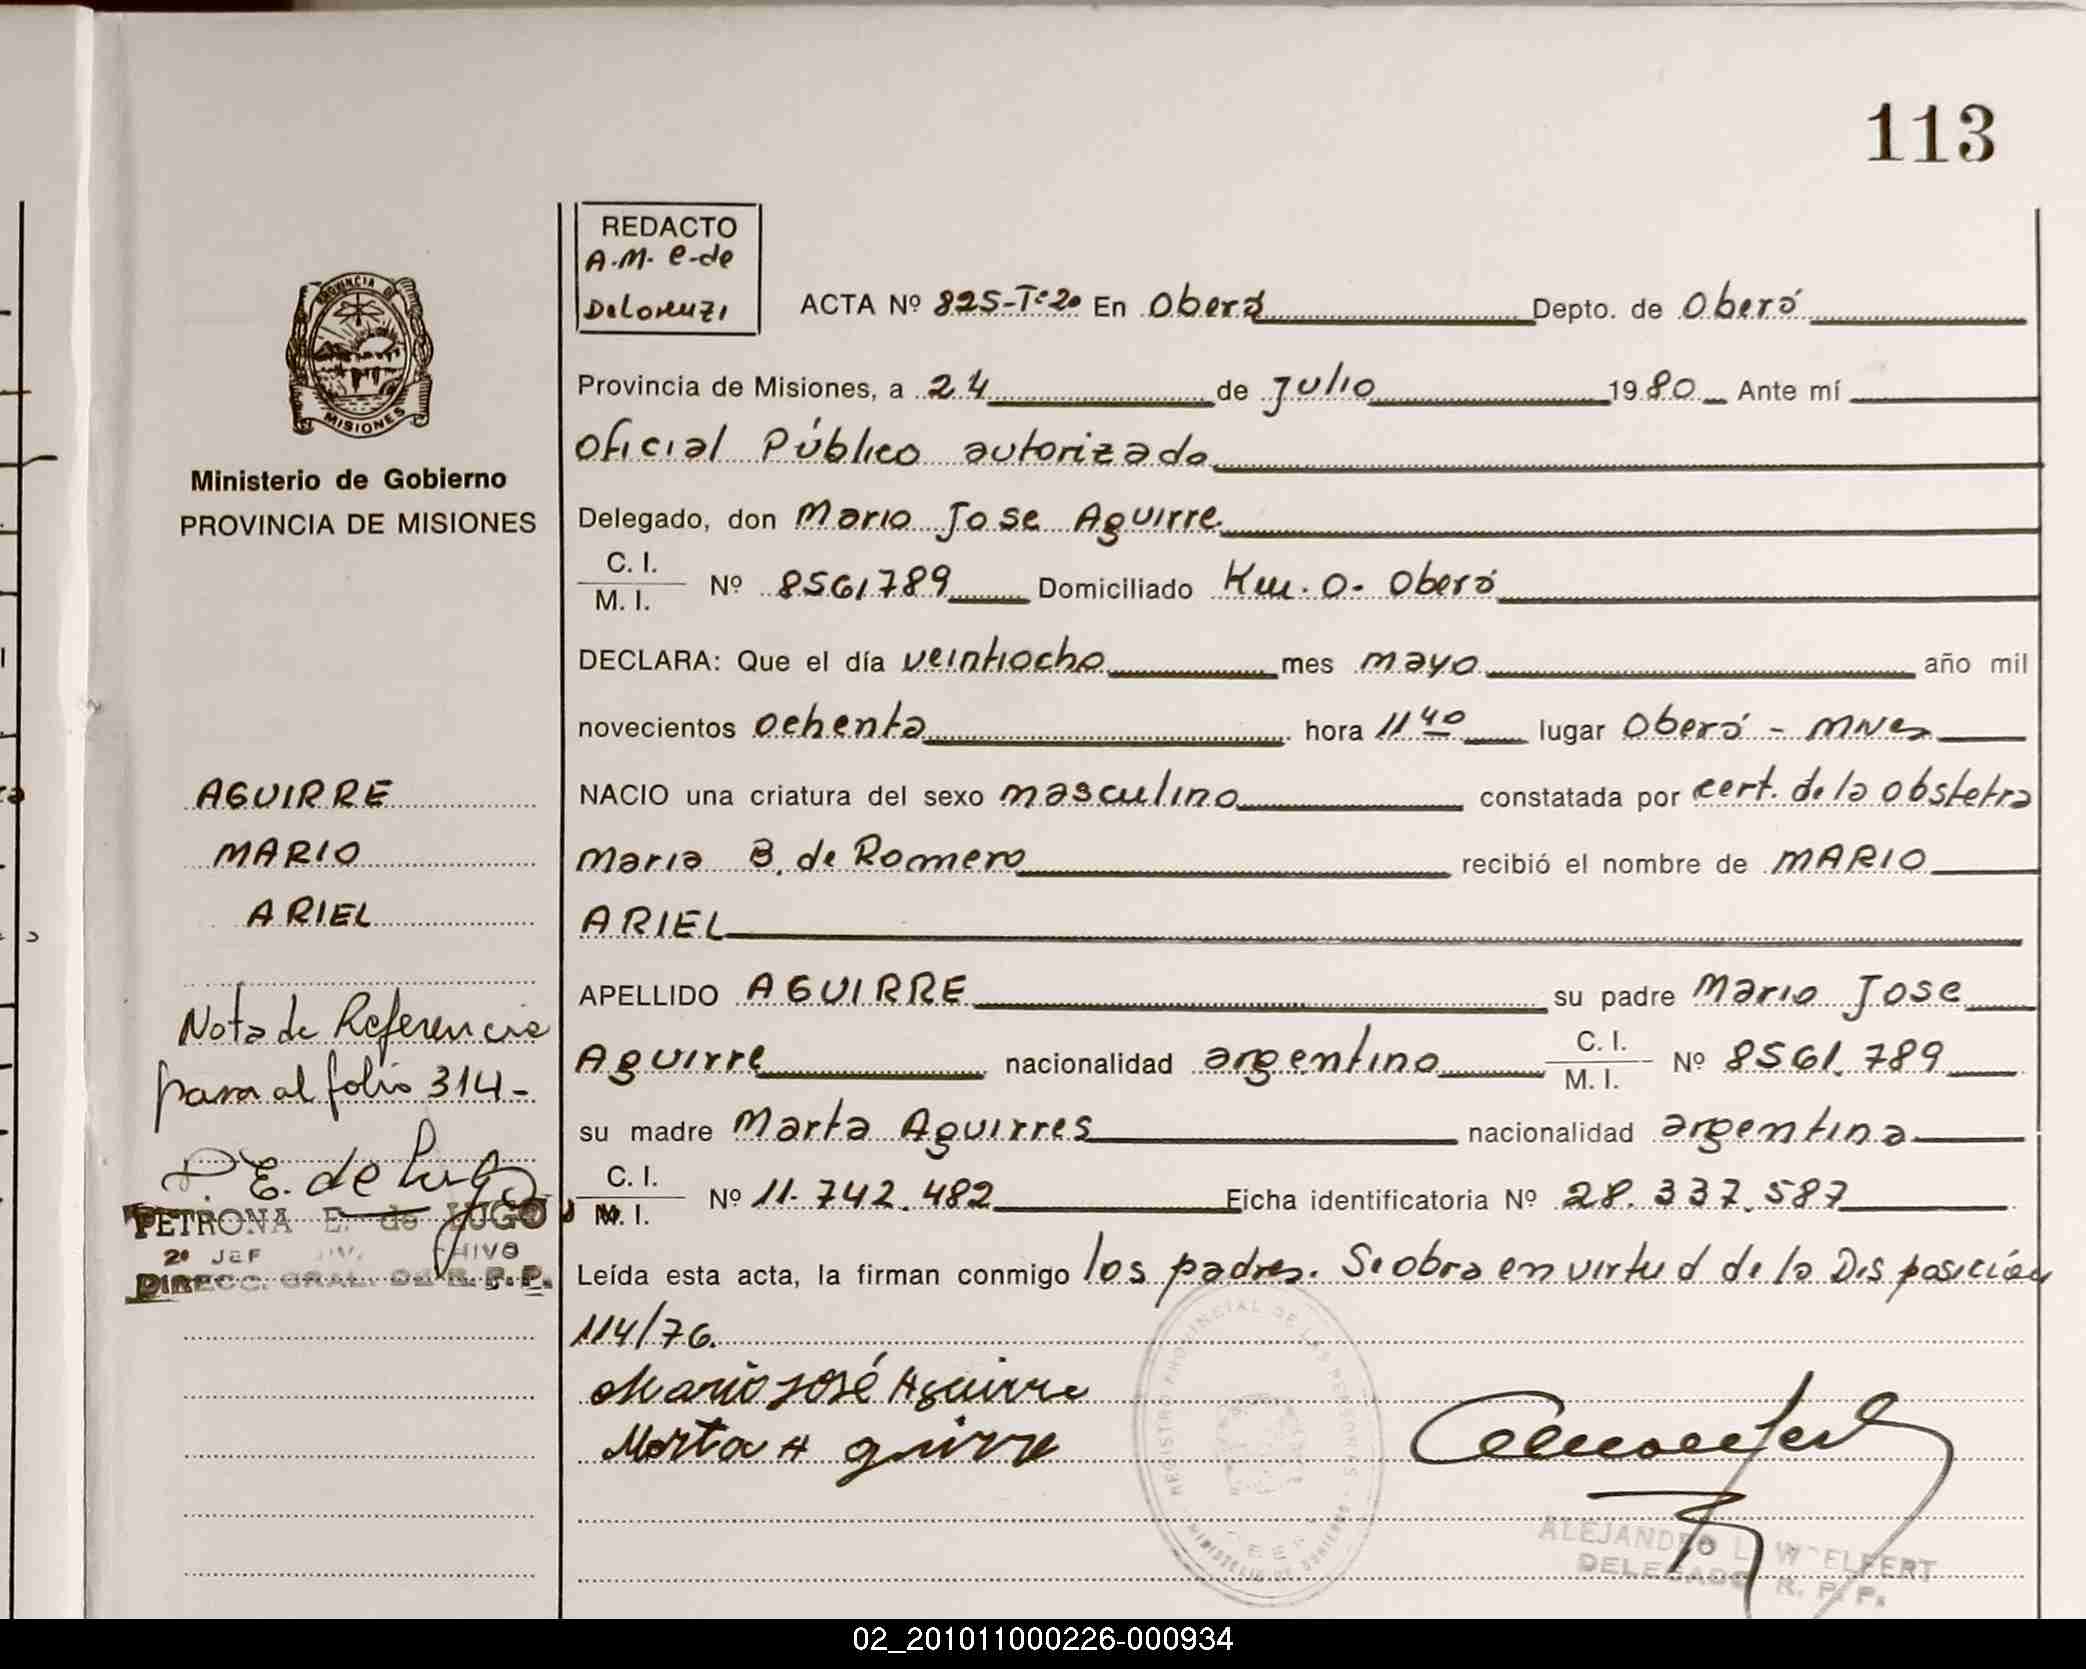 113
REDACTO
A.M. e. de
DeLorenzi
ACTA Nº 825-Tº2º En Oberá Depto. de Oberá
Provincia de Misiones, a 24 de julio 1980 Ante mí
oficial Público autorizado
Delegado, don Mario Jose Aguirre
C. I.
M. I. Nº 8561789 Domiciliado Km. 0- Oberá
DECLARA: Que el día veintiocho mes mayo año mil
novecientos ochenta hora 11 40 lugar Oberá - MNes
NACIO una criatura del sexo masculino constatada por cert. de la obstetra
Maria B. de Romero recibió el nombre de MARIO
ARIEL
APELLIDO AGUIRRE su padre Mario Jose
Aguirre nacionalidad argentino C. I.
M. I. Nº 8561.789
su madre Marta Aguirres nacionalidad argentina
C. I.
M. I. Nº 11.742.482 Ficha identificatoria Nº 28.337.587
Leída esta acta, la firman conmigo los padres. Se obra en virtud de la Disposición
114/76.
Mario José Aguirre
Marta Aguirre
REGISTRO PROVINCIAL DE LAS PERSONAS
MINISTERIO DE GOBIERNO
ALEJANDRO L.
DELEGADO R. P. P.
PROVINCIA DE
MISIONES
Ministerio de Gobierno
PROVINCIA DE MISIONES
AGUIRRE
MARIO
ARIEL
Nota de Referencia
pasa al folio 314-
P E. de Lugo
PETRONA E. de LUGO
2º JEF
DIRECC. GRAL. DE R. P. P.
02_201011000226-000934